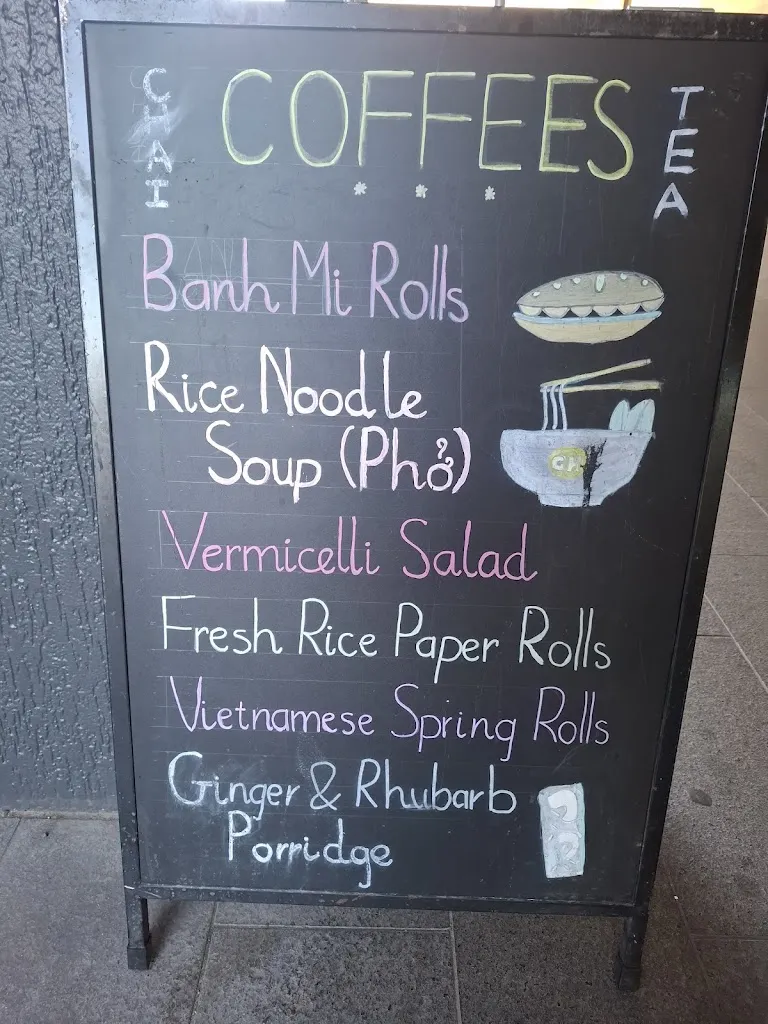 CHAI
COFFEES
TEA
* * *
Banh Mi Rolls
Rice Noodle
Soup (Phở)
Vermicelli Salad
Fresh Rice Paper Rolls
Vietnamese Spring Rolls
Ginger & Rhubarb
Porridge